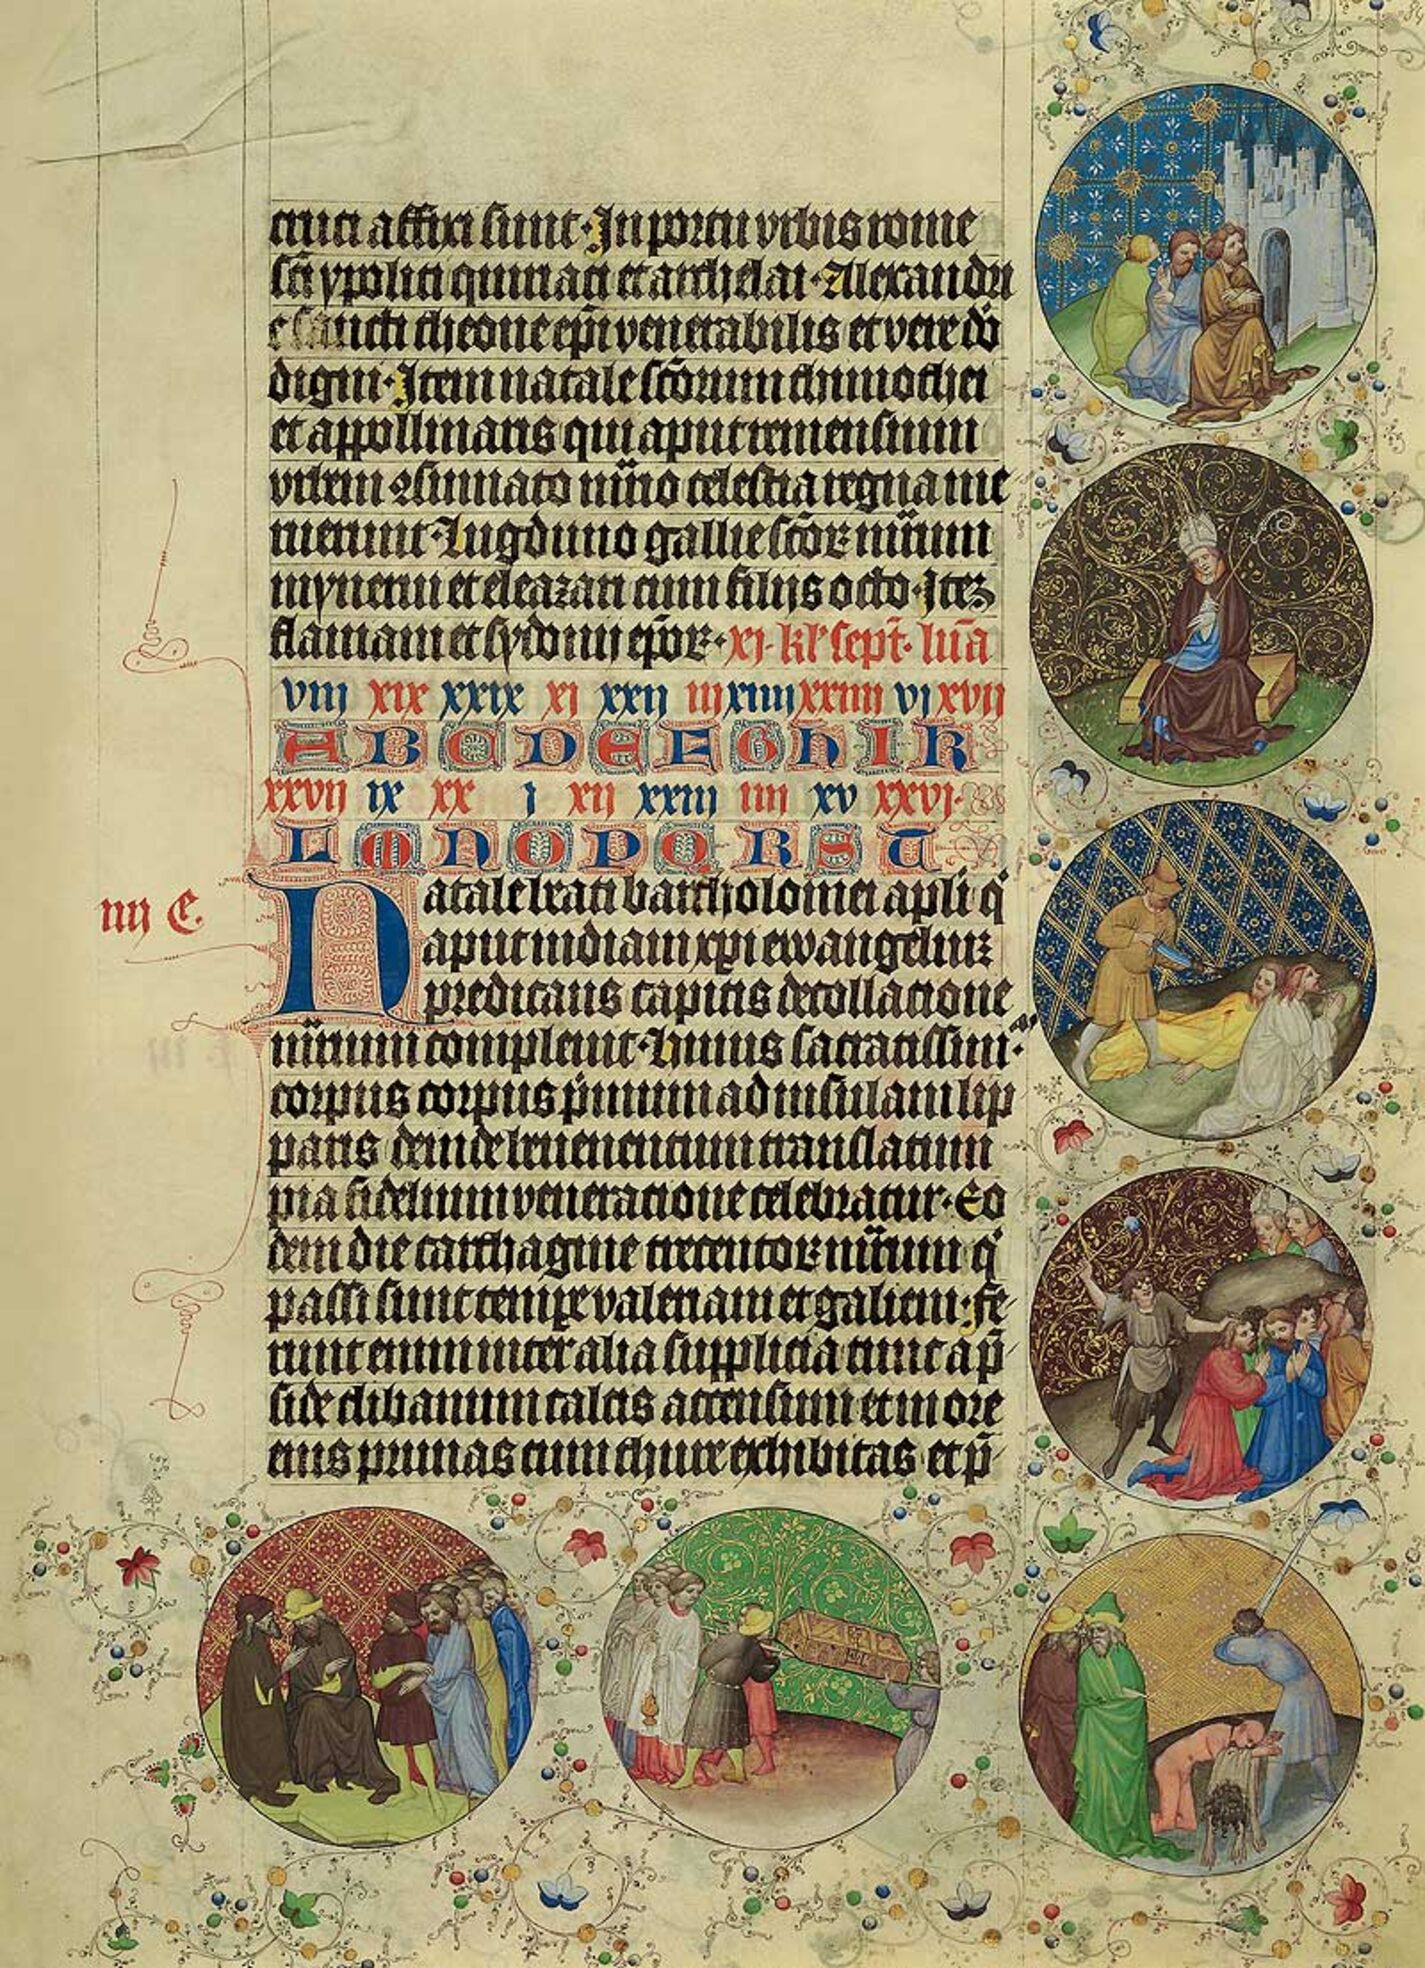 cruci affixi sunt· In portu urbis rome
sc̄i ypoliti quiriaci et archelai· Alexandri
e sancti theone ep̄i venerabilis et vere d̄o
digni· Item natale sc̄orum thimothei
et appollinaris qui aput remensium
urbem ꝯsumato m̄rio celestia regna me
ruerunt· Lugduno gallie sc̄oꝝ m̄rum
mynerui et eleazari cum filijs octo· Iteꝫ
flauiani et sydonij ep̄oꝝ· xj· kl̄ sept̄· lūa
viij xix xxix xi xxij iij xiiij xxiiij vi xvij
A B C D E F G H I K
xxvij ix xx j xij xxiij iiij xv xxvj·
L M N O P Q R S T
iiij C.
Natale beati bartholomei apl̄i q̇
aput indiam xp̄i ewangeliuꝫ
predicans capitis decollacione
m̄rium compleuit· Huius sacratissimū
corpus corpus p̄mum ad insulam lip
paris deinde beneuentum translatum
pia fidelium veneracione celebratur· Eo
dem die carthagine trecentoꝝ m̄rum q̇
passi sunt tempꝛe valeriani et galieni· fe
runt enim inter alia supplicia tunc a p̄
side clibanum calcis accensum et in ore
eius prunas cum thure exhibitas et p̄